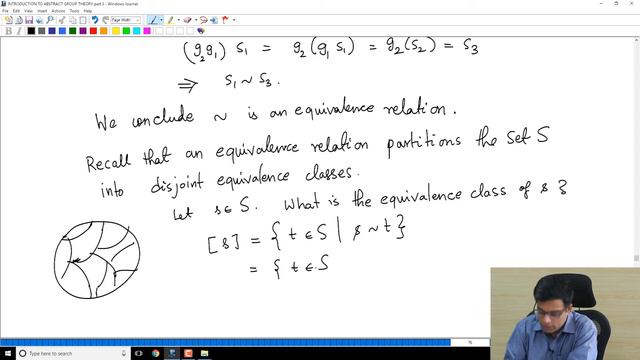 INTRODUCTION TO ABSTRACT GROUP THEORY part 3 - Windows Journal
File Edit View Insert Actions Tools Help
Page Width
(g₂g₁) s₁ = g₂(g₁s₁) = g₂(s₂) = s₃
⇒ s₁ ~ s₃.
We conclude ~ is an equivalence relation.
Recall that an equivalence relation partitions the set S
into disjoint equivalence classes.
Let s ∈ S. What is the equivalence class of s?
[s] = { t ∈ S | s ~ t }
= { t ∈ S
Type here to search